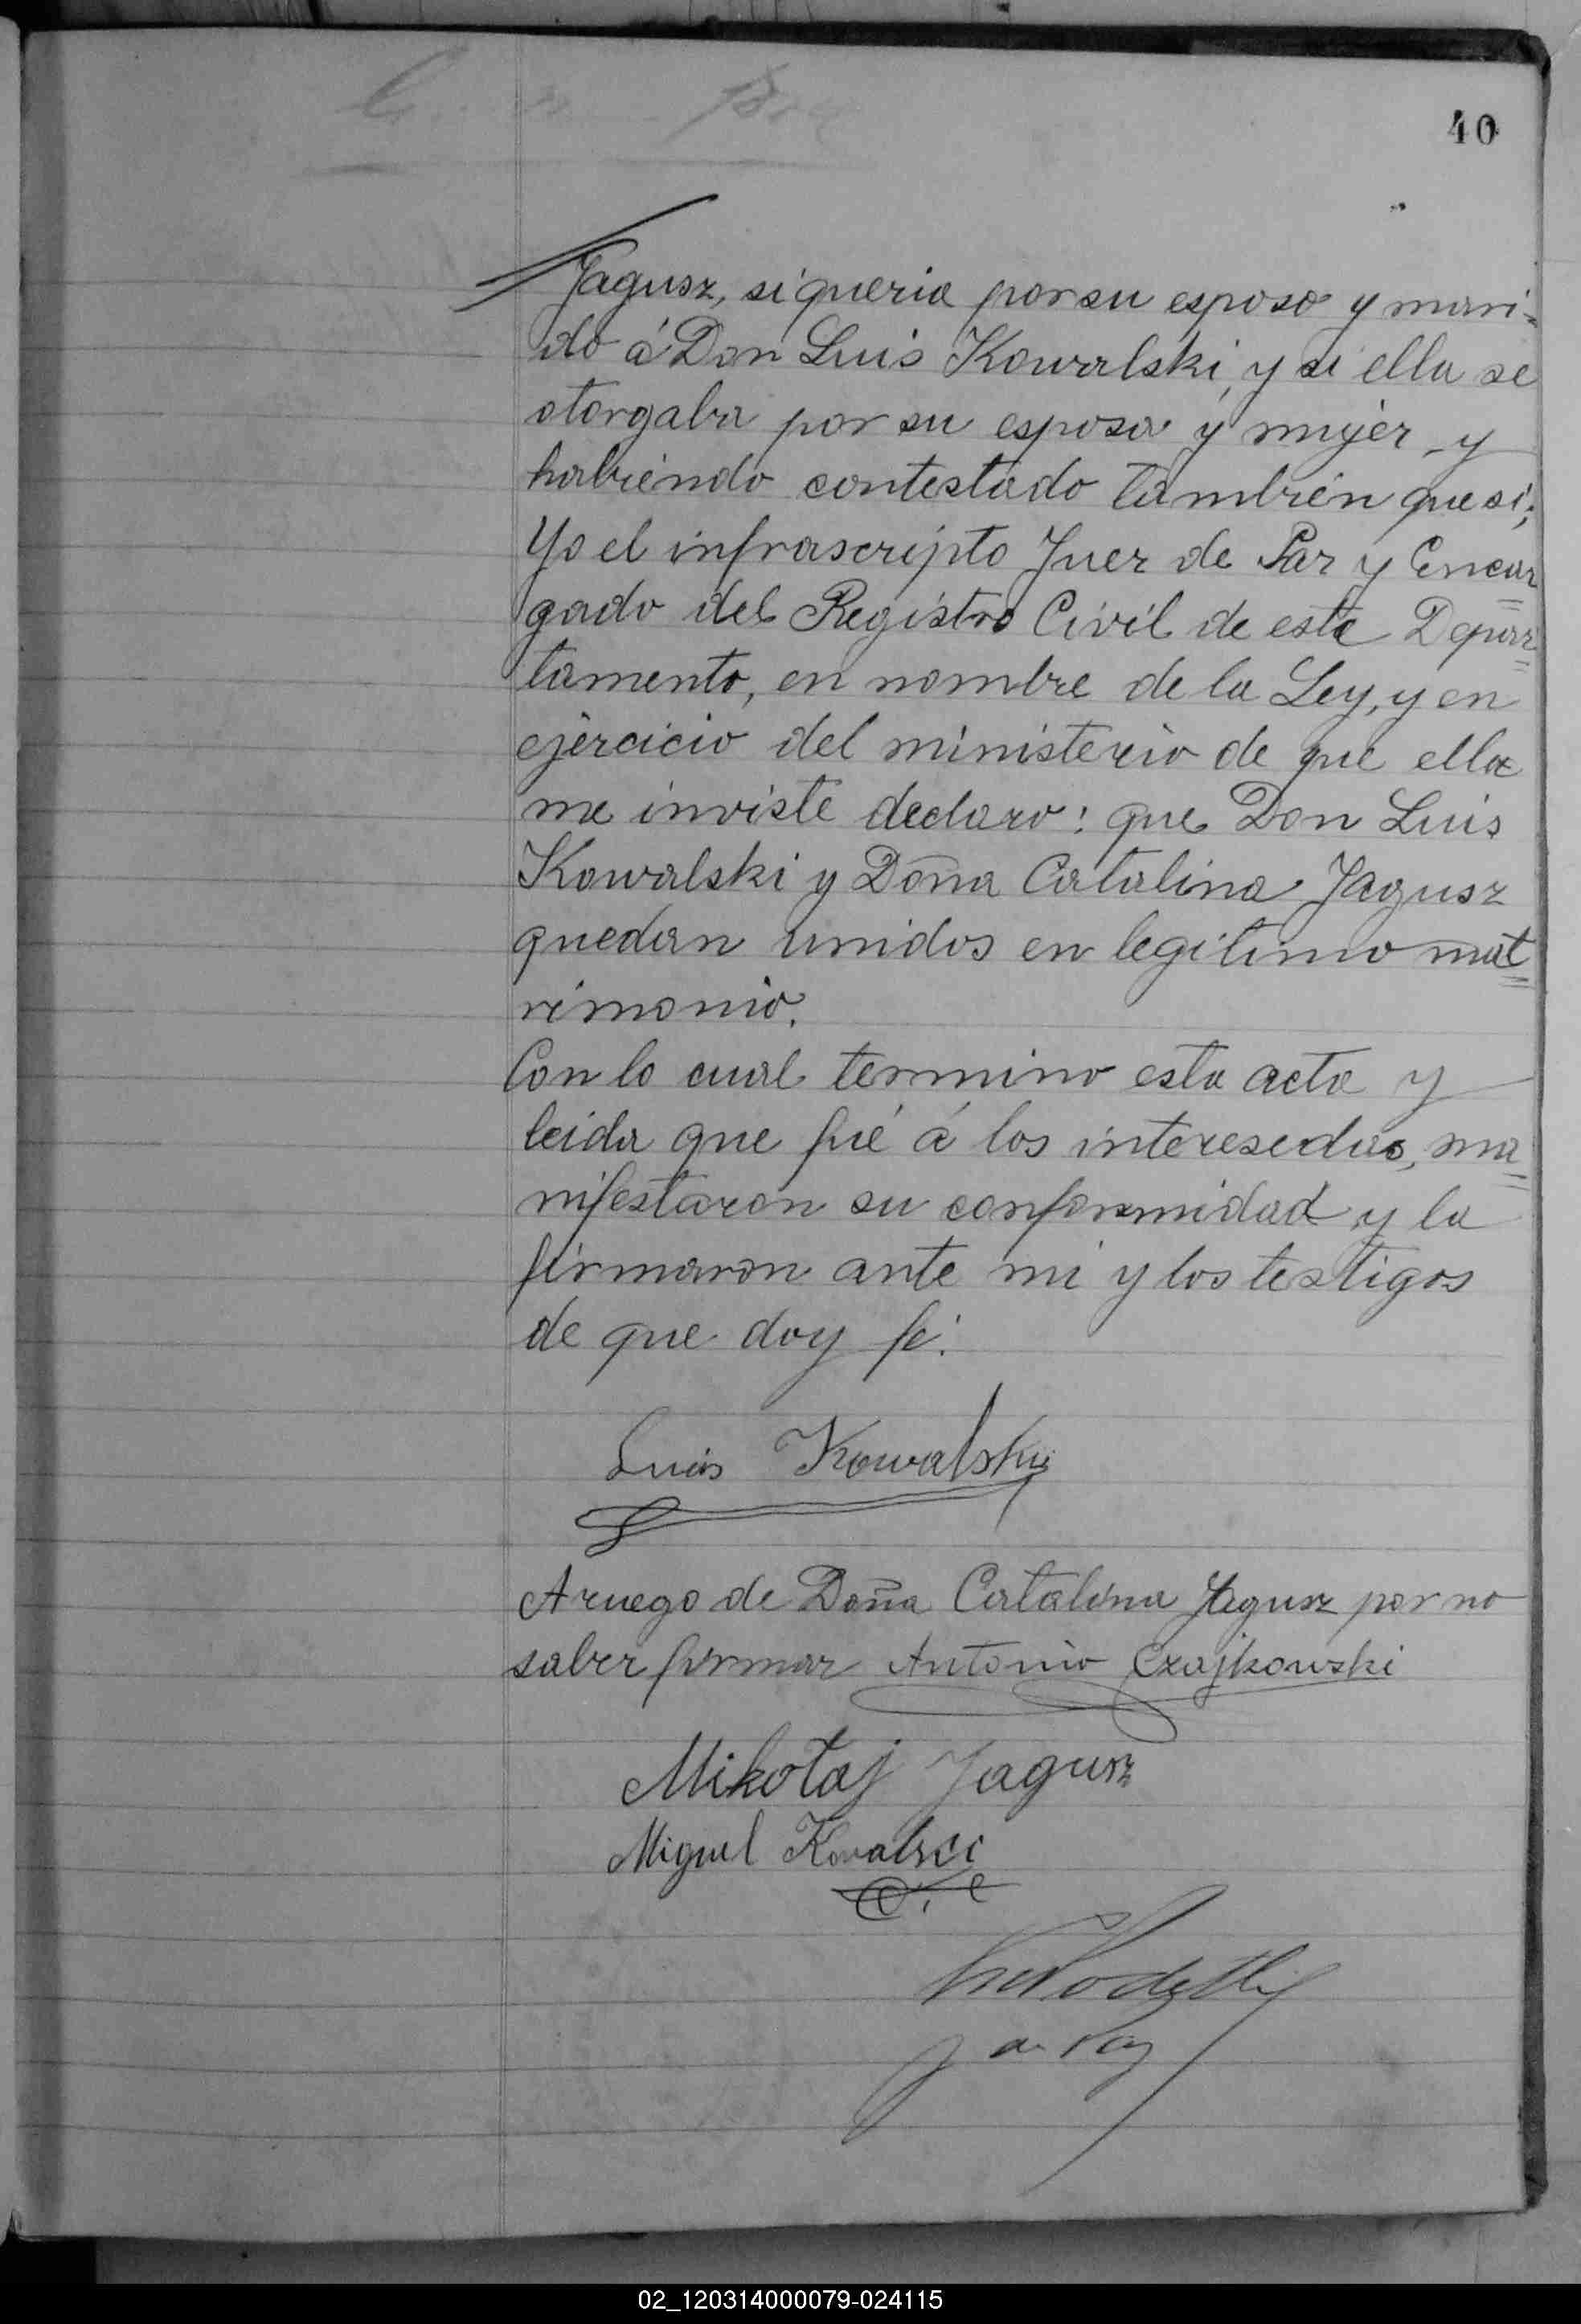 40
Jagusz, si queria por su esposo y mari=
do á Don Luis Kowalski, y si ella se
otorgaba por su esposa y mujer y
habiendo contestado también que si;
Yo el infrascripto Juez de Paz y Encar=
gado del Registro Civil de este Depar=
tamento, en nombre de la Ley, y en
ejercicio del ministerio de que ella
me inviste declaro: que Don Luis
Kowalski y Doña Catalina Jagusz
quedan unidos en legitimo mat=
rimonio.
Con lo cual termino esta acta y
leida que fué á los interesedos, ma=
nifestaron su conformidad y la
firmaron ante mi y los testigos
de que doy fé.
Luis Kowalski
A ruego de Doña Catalina Jagusz por no
saber firmar Antonio Czajkowski
Mikołaj Jagusz
Miguel Kovalsci
J de Paz
02_120314000079-024115